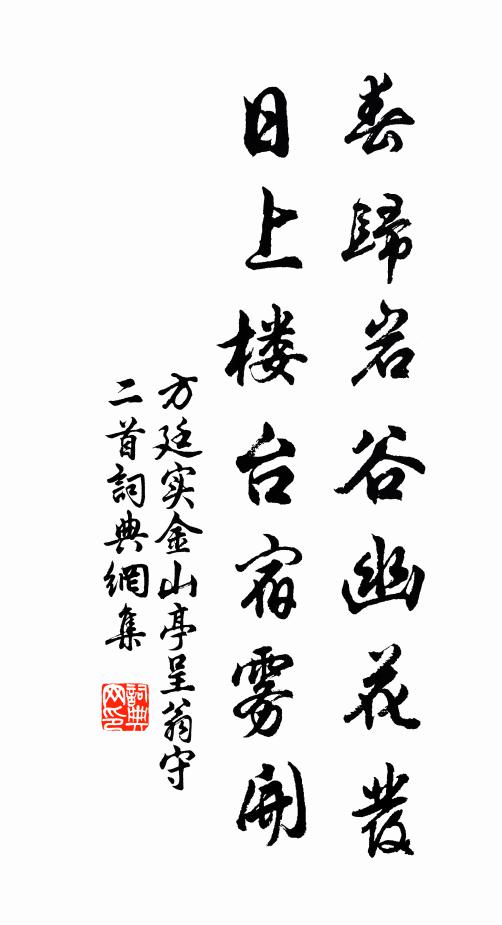 春歸岩谷幽花發
日上楼台宿雾開
方廷实金山亭呈翁守
二首詞典網集
詞典
网印